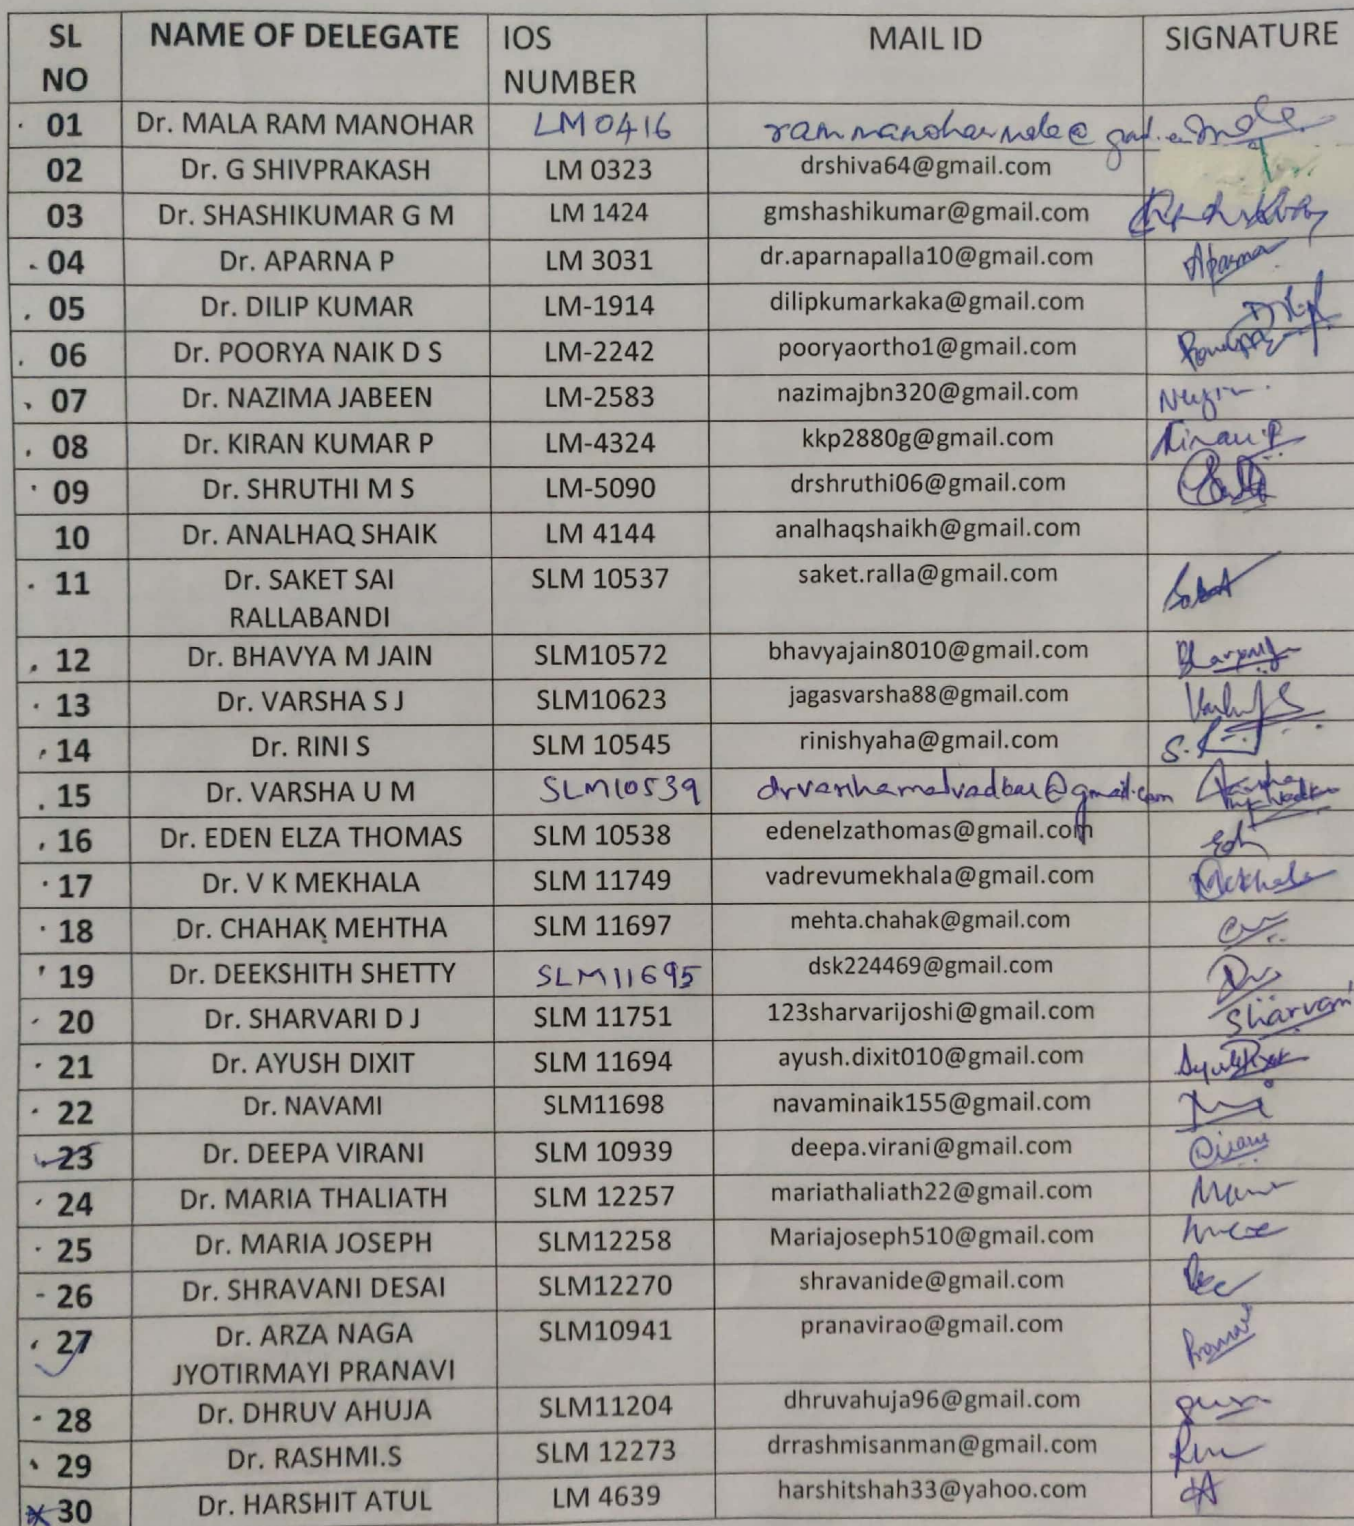 SL NO NAME OF DELEGATE IOS NUMBER MAIL ID SIGNATURE
01 Dr. MALA RAM MANOHAR LM0416
02 Dr. G SHIVPRAKASH LM 0323 drshiva64@gmail.com
03 Dr. SHASHIKUMAR G M LM 1424 gmshashikumar@gmail.com
04 Dr. APARNA P LM 3031 dr.aparnapalla10@gmail.com Aparna
05 Dr. DILIP KUMAR LM-1914 dilipkumarkaka@gmail.com
06 Dr. POORYA NAIK D S LM-2242 pooryaortho1@gmail.com
07 Dr. NAZIMA JABEEN LM-2583 nazimajbn320@gmail.com
08 Dr. KIRAN KUMAR P LM-4324 kkp2880g@gmail.com Kiran.P
09 Dr. SHRUTHI M S LM-5090 drshruthi06@gmail.com
10 Dr. ANALHAQ SHAIK LM 4144 analhaqshaikh@gmail.com
11 Dr. SAKET SAI RALLABANDI SLM 10537 saket.ralla@gmail.com
12 Dr. BHAVYA M JAIN SLM10572 bhavyajain8010@gmail.com
13 Dr. VARSHA S J SLM10623 jagasvarsha88@gmail.com
14 Dr. RINI S SLM 10545 rinishyaha@gmail.com
15 Dr. VARSHA U M SLM10539 drvarshamalvadkar@gmail.com
16 Dr. EDEN ELZA THOMAS SLM 10538 edenelzathomas@gmail.com
17 Dr. V K MEKHALA SLM 11749 vadrevumekhala@gmail.com Mekhala
18 Dr. CHAHAK MEHTHA SLM 11697 mehta.chahak@gmail.com
19 Dr. DEEKSHITH SHETTY SLM11695 dsk224469@gmail.com
20 Dr. SHARVARI D J SLM 11751 123sharvarijoshi@gmail.com Sharvari
21 Dr. AYUSH DIXIT SLM 11694 ayush.dixit010@gmail.com
22 Dr. NAVAMI SLM11698 navaminaik155@gmail.com
23 Dr. DEEPA VIRANI SLM 10939 deepa.virani@gmail.com
24 Dr. MARIA THALIATH SLM 12257 mariathaliath22@gmail.com
25 Dr. MARIA JOSEPH SLM12258 Mariajoseph510@gmail.com
26 Dr. SHRAVANI DESAI SLM12270 shravanide@gmail.com
27 Dr. ARZA NAGA JYOTIRMAYI PRANAVI SLM10941 pranavirao@gmail.com
28 Dr. DHRUV AHUJA SLM11204 dhruvahuja96@gmail.com
29 Dr. RASHMI.S SLM 12273 drrashmisanman@gmail.com
30 Dr. HARSHIT ATUL LM 4639 harshitshah33@yahoo.com